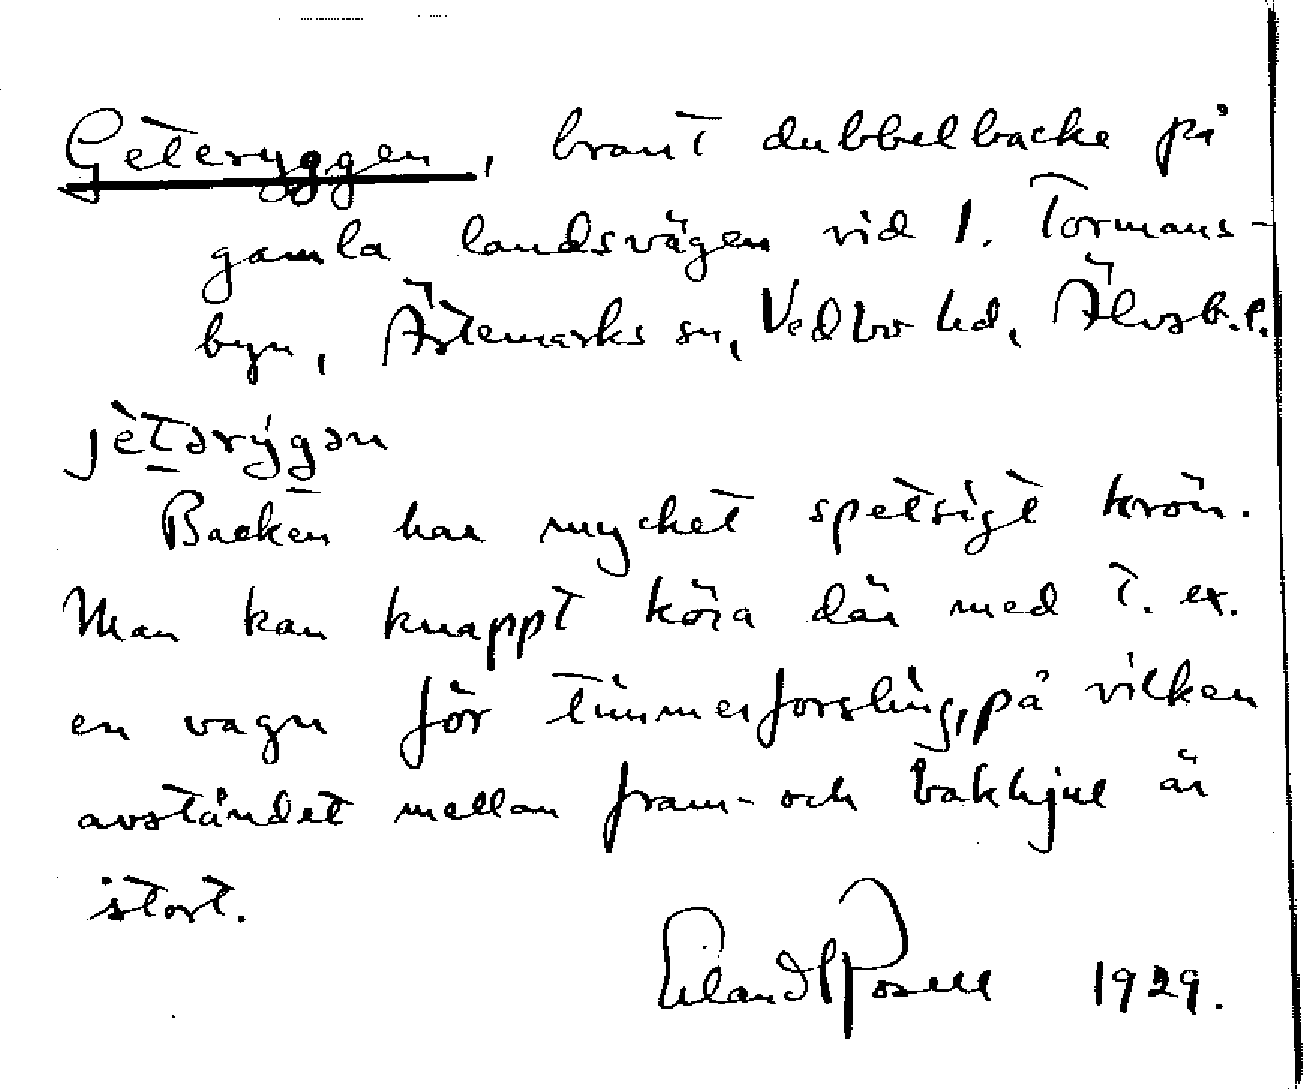 Geteryggen, brant dubbelbacke på
gamla landsvägen vid 1. Tormans-
byn, Ärtemarks sn, Vedbo hd, Älvsb. l.
jètərýgən
Backen har mycket spetsigt krön.
Man kan knappt köra där med t. ex.
en vagn för timmerforsling, på vilken
avståndet mellan fram- och bakhjul är
stort.
Erland Rosell 1929.